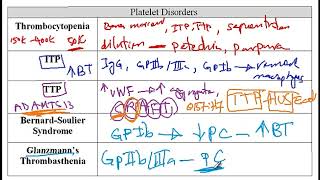 Platelet Disorders
Thrombocytopenia
150K - 400K 50K
Bone marrow, ITP, TTP, sequestration
dilution → petechia, purpura
ITP
↑BT
IgG, GPIIb/IIIa, GPIb → removal
macrophages
TTP
ADAMTS13
↑ vWF → ↑
O157:H7
TTP HUS
Bernard-Soulier
Syndrome
GPIb → ↓PC → ↑BT
Glanzmann's
Thrombasthenia
GPIIb/IIIa → PC